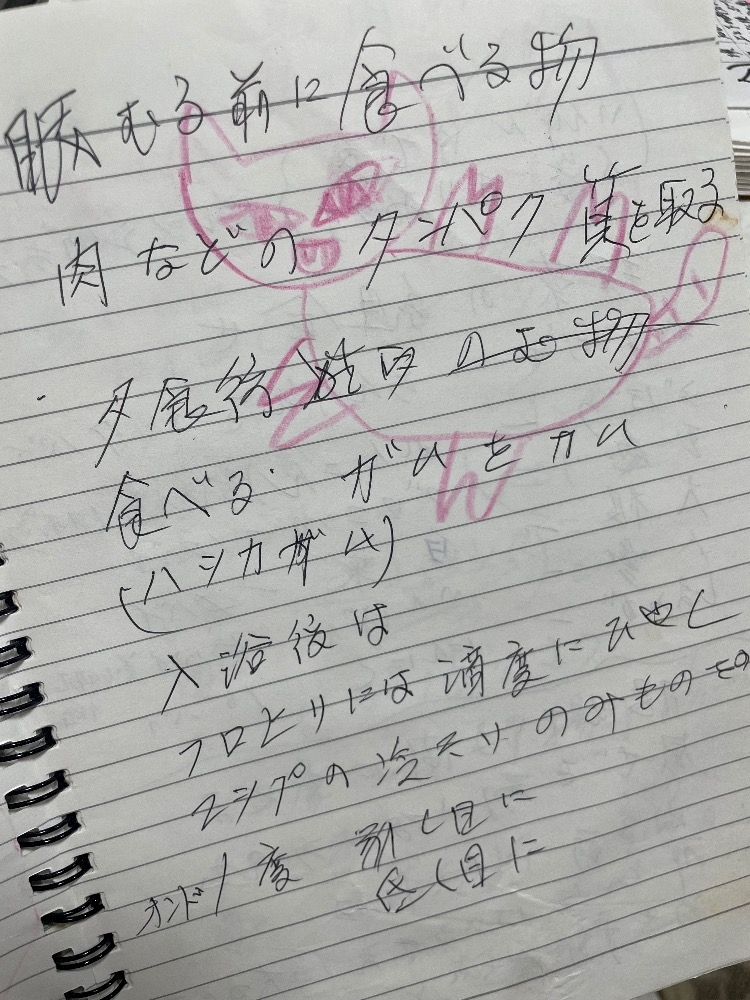 眠むる前に食べる物
肉などのタンパク質を取る
夕食後 のむ物
食べる ガムをカム
(ハッカガム)
入浴後は
フロヒリには適度にひやし
コップの冷えのみもの
オンド1度 前し目に
低し目に